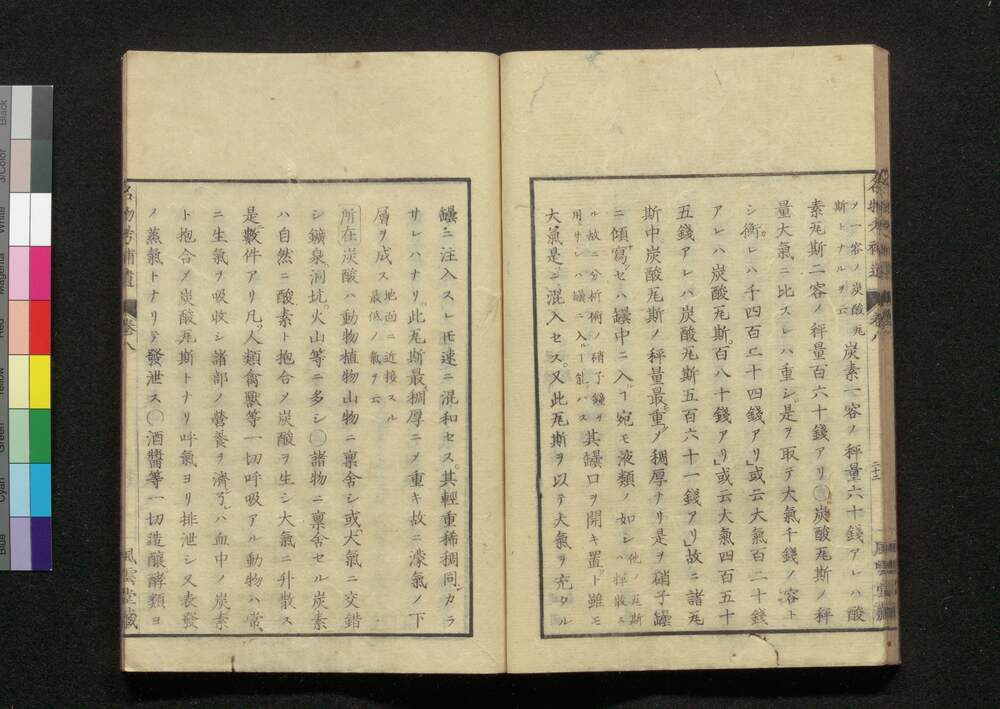 ソ一容ノ炭酸瓦斯トナルヲ云 炭素一容ノ秤量六十錢アレハ酸
素瓦斯二容ノ秤量百六十錢アリ○炭酸瓦斯ノ秤
量大氣ニ比スレハ重シ是ヲ取テ大氣千錢ノ容ト
シ衡レハ千四百二十四錢アリ」或云大氣百二十錢
アレハ炭酸瓦斯百八十錢アリ」或云大氣四百五十
五錢アレバ炭酸瓦斯五百六十一錢アリ」故ニ諸瓦
斯中炭酸瓦斯ノ秤量最重ノ稠厚ナリ是ヲ硝子罎
ニ傾寫セハ罎中ニ入ヿ宛モ液類ノ如シ 他ノ瓦斯ハ揮散スル故ニ分析術ノ硝子鐘ヲ用サレハ罎ニ入ルヿ能ハス 其罎口ヲ開キ置ト雖モ
大氣是ニ混入セス又此瓦斯ヲ以テ大氣ヲ充タル
罎ニ注入スレ𪜈速ニ混和セス其輕重稀稠同カラ
サレハナリ」此瓦斯最稠厚ニノ重キ故ニ濛氣ノ下
層ヲ成ス 地面ニ近接スル最低ノ氣ヲ云
所在 炭酸ハ動物植物山物ニ稟舍シ或大氣ニ交錯
シ鑛泉洞坑火山等ニ多シ○諸物ニ稟舍セル炭素
ハ自然ニ酸素ト抱合ノ炭酸ヲ生シ大氣ニ升散ス
是數件アリ凡人類禽獸等一切呼吸アル動物ハ常
ニ生氣ヲ吸收シ諸部ノ營養ヲ濟ヿハ血中ノ炭素
ト抱合ノ炭酸瓦斯トナリ呼氣ヨリ排泄シ又表發
ノ蒸氣トナリテ發泄ス○酒醬等一切造釀酵類ヨ
名物考補遺 卷八 風雲堂藏